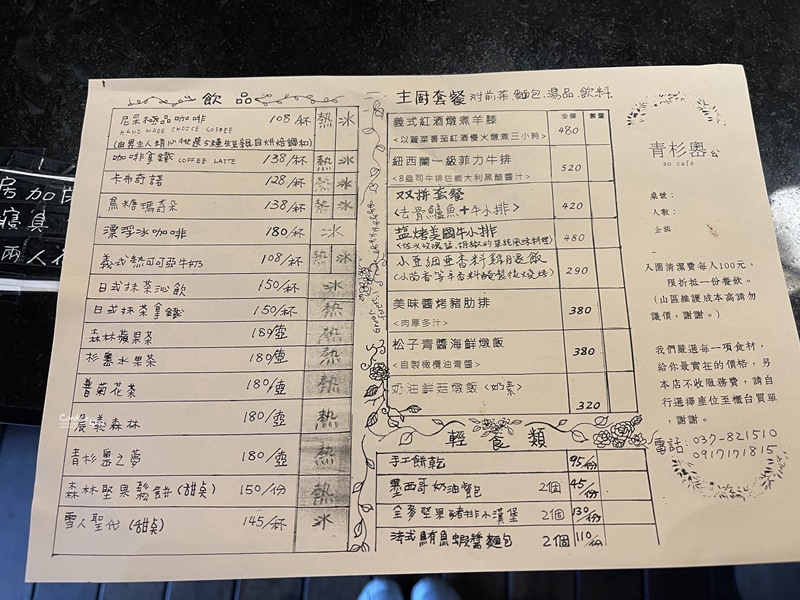 飲品
尼果極品咖啡 108/杯 熱 冰
HAND MADE CHOICE COFFEE
咖啡拿鐵 COFFEE LATTE 138/杯 熱 冰
卡布奇諾 128/杯 熱 冰
焦糖瑪奇朵 138/杯 熱 冰
漂浮冰咖啡 180/杯 冰
義式熱可可亞牛奶 108/杯 熱 冰
日式抹茶沁飲 150/杯 冰
日式抹茶拿鐵 150/杯 熱
森林蘋果茶 180/壺 熱
杉奧水果茶 180/壺 熱
普菊花茶 180/壺 熱
晨義森林 180/壺 熱
青杉奧之夢 180/壺 熱
森林堅果鬆餅(甜点) 150/份 熱
雪人聖代(甜点) 145/杯 冰
主厨套餐 附前菜.麵包.湯品.飲料.
金額 數量
義式紅酒燉煮羊膝 480
<以蔬菜番茄紅酒慢火燉煮三小時>
紐西蘭一級菲力牛排 520
<8盎司牛排佐義大利黑醋醬汁>
双拼套餐 420
<去骨鱸魚+牛小排>
塩烤美國牛小排 480
小亞細亞香料雞腿飯 290
(小茴香等辛香料醃製後燒烤)
美味醬烤豬肋排 380
<肉厚多汁>
松子青醬海鮮燉飯 380
<自製橄欖油青醬>
奶油鮮菇燉飯<奶素> 320
輕食類
手工餅乾 95/份
墨西哥奶油餐包 2個 45/份
全麥堅果豬排小漢堡 2個 130/份
法式鮪魚蝦醬麵包 2個 110/份
青杉奧
ao café
桌號：
人數：
金額
入園清潔費每人100元，
限折抵一份餐飲。
(山區維護成本高請勿
議價，謝謝。)
我們嚴選每一項食材，
給你最實在的價格，另
本店不收服務費，請自
行選擇座位至櫃台買單
，謝謝。
電話：037-821510
0917171815
房加
寢具
兩人